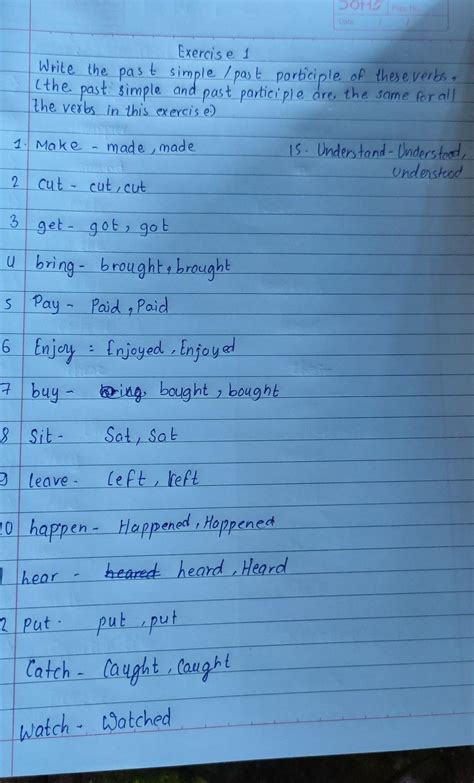 Page No.
Date / /
Exercise 1
Write the past simple /past participle of these verbs.
(the past simple and past participle are the same for all
the verbs in this exercise)
1. Make - made, made
15. Understand - Understood,
Understood
2 cut - cut, cut
3 get - got, got
4 bring - brought, brought
5 Pay - Paid, Paid
6 Enjoy = Enjoyed, Enjoyed
7 buy - bought, bought
8 Sit - Sat, Sat
9 leave - left, left
10 happen - Happened, Happened
1 hear - heared heard, Heard
2 Put - put, put
Catch - Caught, Caught
Watch - Watched